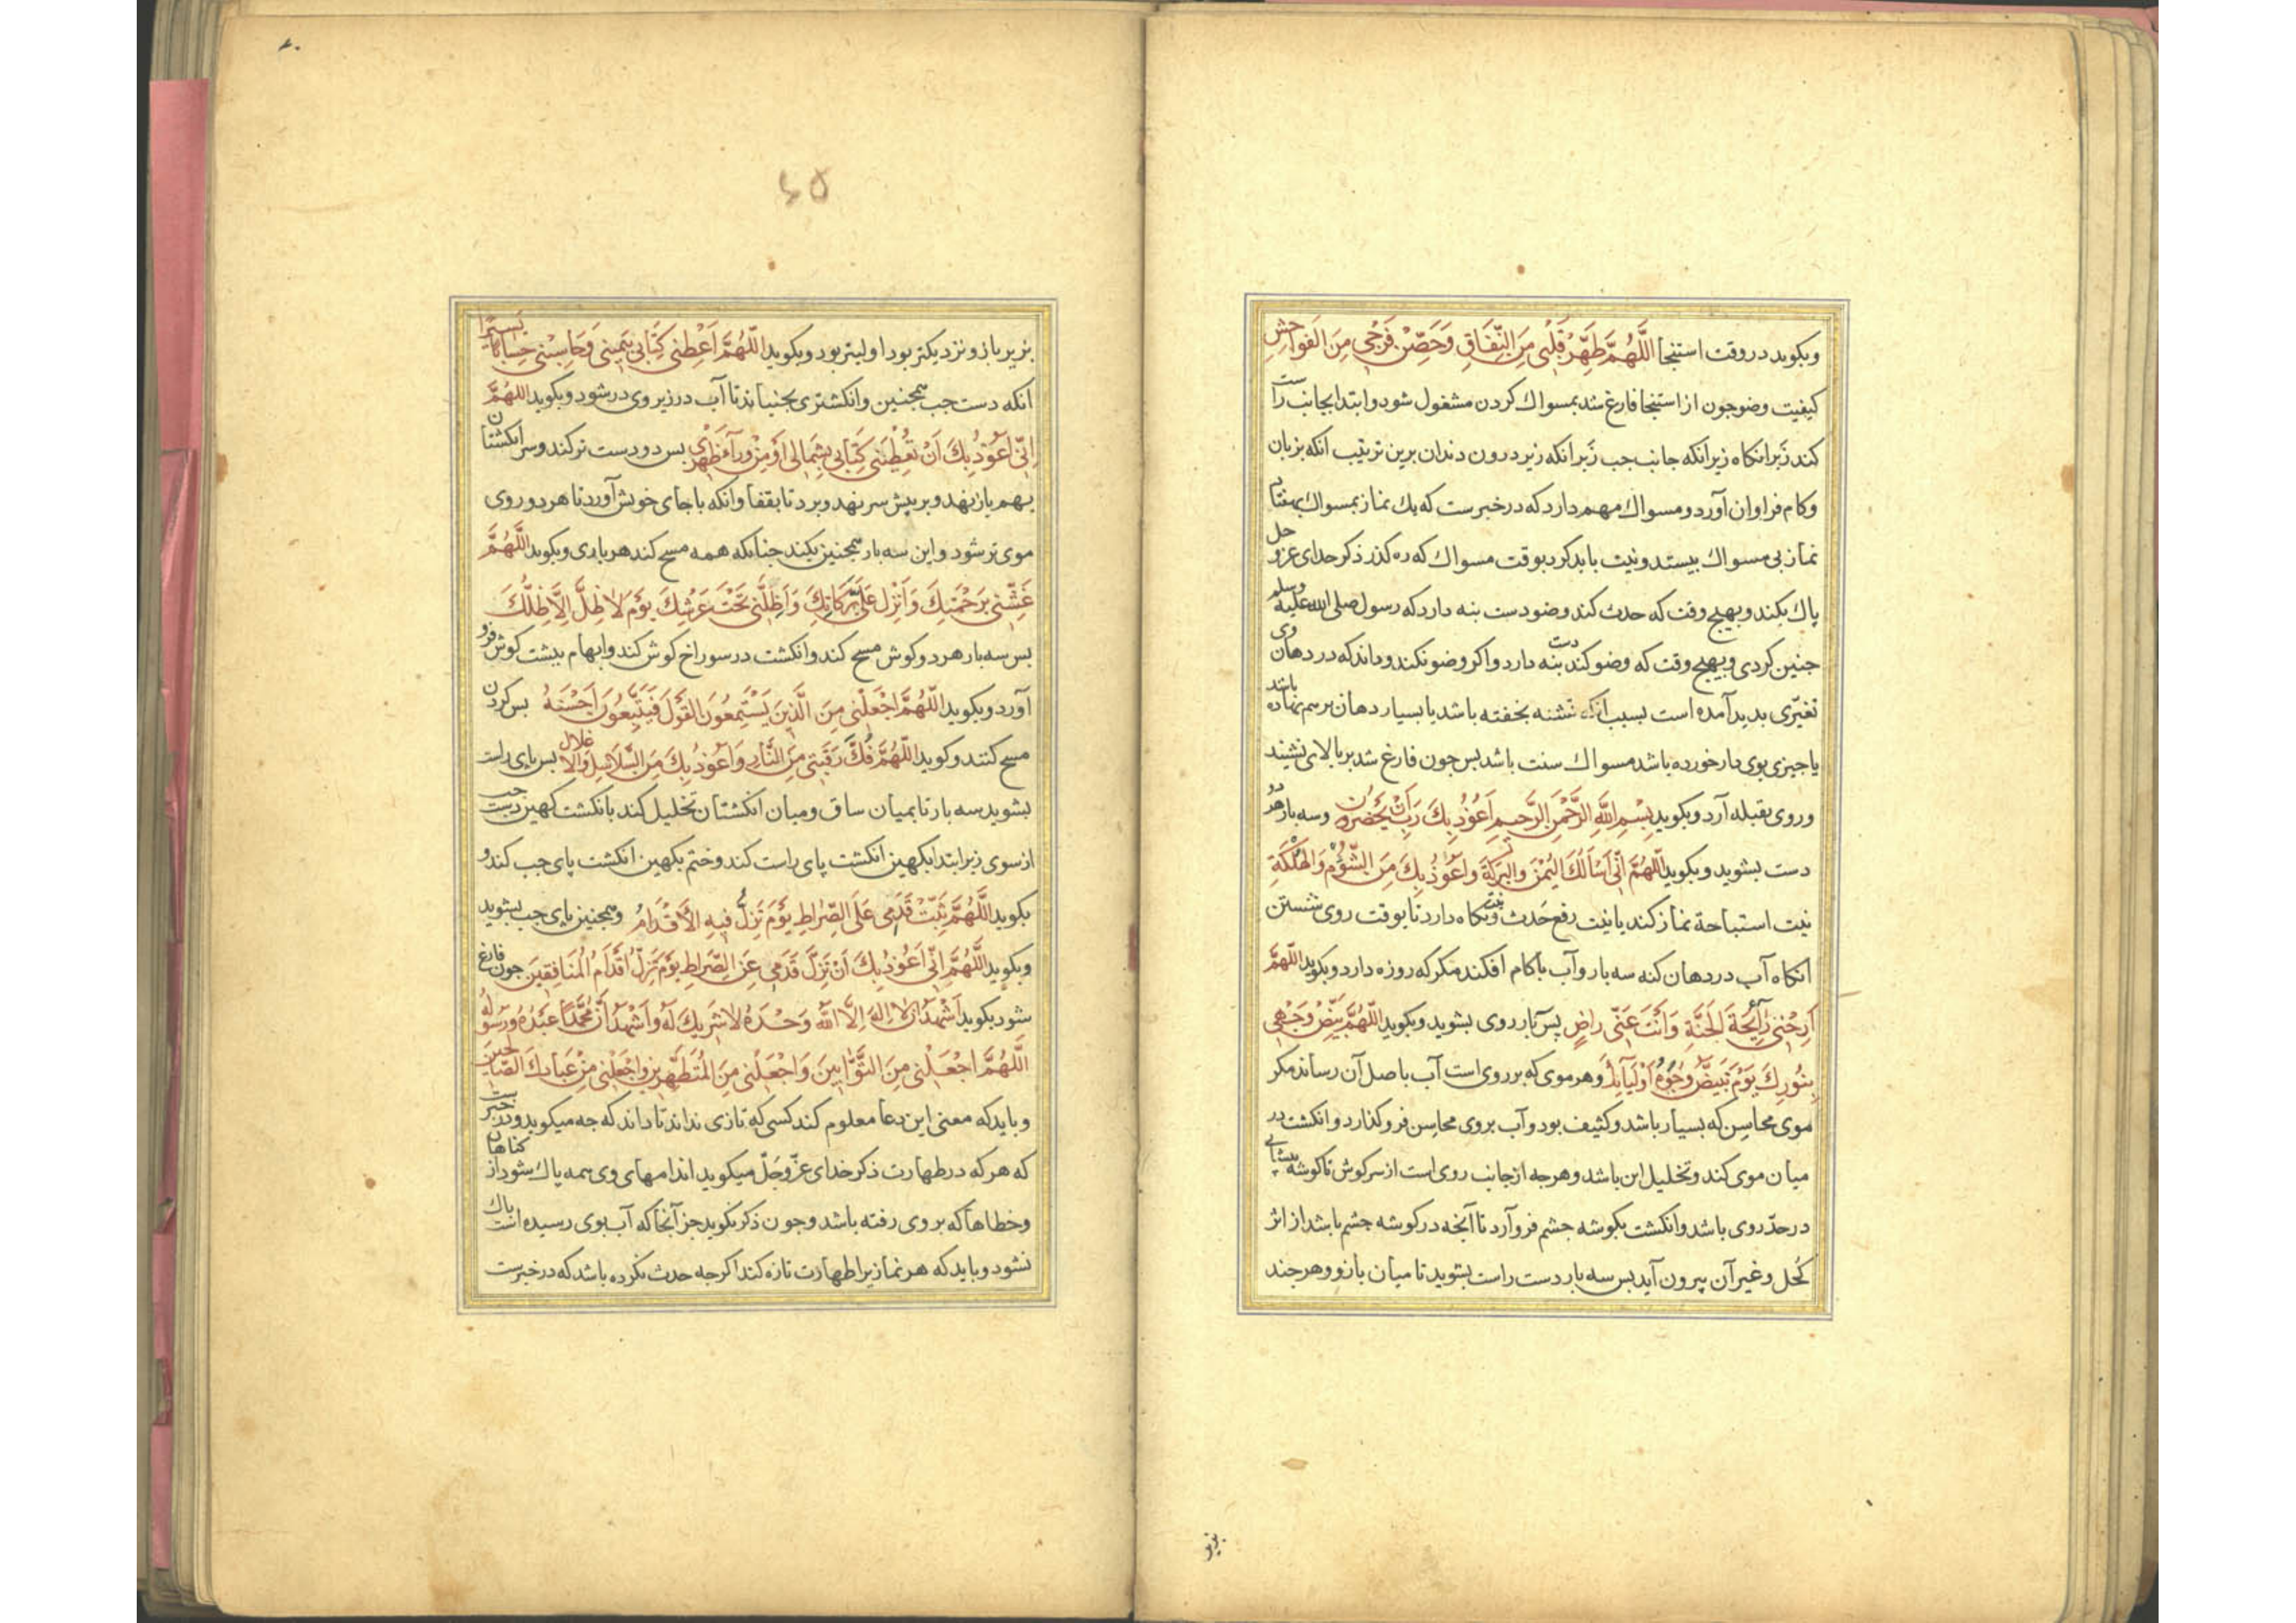 وبکوید در وقت استنجا اَللَّهُمَّ طَهِّرْ قَلْبِی مِنَ النِّفَاقِ وَحَصِّنْ فَرْجِی مِنَ الفَوَاحِشِ
کیفیت وضو جون از استنجا فارغ شد بمسواك کردن مشغول شود وابتدا بجانب راست
کند زَبر انکاه زیر انکه جانب جب زَبر انکه زیر درون دندان برین ترتیب انکه بزبان
وکام فراوان آورد ومسواك مهم دارد که در خبرست که یك نماز بمسواك بهفتاد
نماز بی مسواك بیستد ونیت باید کرد بوقت مسواك که ره کذر ذکر خدای عزوجل
پاك بکند وبهیج وقت که حدث کند وضو دست بنه دارد که رسول صلی الله علیه وسلم
جنین کردی وبهیج وقت که وضو کند دست بنه دارد واکر وضو نکند وداند که در دهان وی
تغیّری بدید آمده است بسبب انکه تشنه بخفته باشد یا بسیار دهان بر هم نهاده باشد
یا جیزی بوی دار خورده باشد مسواك سنت باشد بس جون فارغ شد بر بالای نشیند
وروی بقبله آرد وبکوید بِسْمِ اللَّهِ الرَّحْمَنِ الرَّحِیمِ اَعُوْذُ بِكَ رَبِّ اَنْ یَحْضُرُونِ وسه بار هر دو
دست بشوید وبکوید اللّهُمَّ اِنّی اَسْاَلُكَ الیُمْنَ وَالبَرَکَةَ وَاَعُوذُ بِكَ مِنَ الشُّؤْمِ وَالْهَلَکَةِ
نیت استباحة نماز کند یا نیت رفع حَدث ونیت نکاه دارد تا بوقت روی شستن
انکاه آب در دهان کنه سه بار وآب باکام افکند مکر که روزه دارد وبکوید اللّهُمَّ
اَرِحْنِی رَائِحَةَ الجَنَّةِ وَاَنْتَ عَنِّی رَاضٍ پس سه بار روی بشوید وبکوید اللّهُمَّ بَیِّضْ وَجْهِی
بِنُورِكَ یَوْمَ تَبْیَضُّ وُجُوهُ اَوْلِیَآئِكَ وهر موی که بر روی است آب باصل آن رساند مکر
موی محاسن که بسیار باشد وکثیف بود وآب بروی محاسن فرو کذارد وانکشت در
میان موی کند وتخلیل این باشد وهرجه از جانب روی است از سر کوش تا کوشه پیشانی
در حدّ روی باشد وانکشت بکوشه جشم فرو آرد تا آنجه در کوشه جشم باشد از اثر
کُحل وغیر آن بیرون آید بس سه بار دست راست بشوید تا میان بازو وهرجند
بزیر بازو نزدیکتر بود اولیتر بود وبکوید اَللّهُمَّ اَعْطِنِی کِتَابِی بِیَمِینِی وَحَاسِبْنِی حِسَابًا یَسِیْرًا
انکه دست جب همجنین وانکشتری بجنباند تا آب در زیر وی در شود وبکوید اللهُمَّ
اِنّی اَعُوْذُ بِكَ اَنْ تُعْطِیَنِی کِتَابِی بِشِمَالِی اَوْ مِنْ وَرَآءِ ظَهْرِی بس دو دست تر کند وسر انکشتان
بهم باز نهد وبر پیش سر نهد وبرد تا بقفا وانکه باجای خویش آورد تا هر دو روی
موی تر شود واین سه بار همجنین بکند جنانکه همه مسح کند هرباری وبکوید اللّهُمَّ
غَشِّنِی بِرَحْمَتِكَ وَاَنْزِلْ عَلَیَّ بَرَکَاتِكَ وَاَظِلَّنِی تَحْتَ عَرْشِكَ یَوْمَ لَا ظِلَّ اِلَّا ظِلُّكَ
بس سه بار هر دو کوش مسح کند وانکشت در سوراخ کوش کند وابهام ببشت کوش فرو
آورد وبکوید اللّهُمَّ اجْعَلْنِی مِنَ الَّذِینَ یَسْتَمِعُونَ القَوْلَ فَیَتَّبِعُونَ اَحْسَنَهُ بس کردن
مسح کنند وکوید اللّهُمَّ فُكَّ رَقَبَتِی مِنَ النَّارِ وَاَعُوْذُ بِكَ مِنَ السَّلَاسِلِ وَالاَغْلَالِ بس پای راست
بشوید سه بار تا بمیان ساق ومیان انکشتان تخلیل کند بانکشت کهین دست جب
از سوی زیر ابتدا بکهین انکشت پای راست کند وختم بکهین انکشت پای جب کند و
بکوید اللَّهُمَّ ثَبِّتْ قَدَمِی عَلَی الصِّرَاطِ یَوْمَ تَزِلُّ فِیهِ الْاَقْدَامُ وهمجنین پای جب بشوید
وبکوید اللَّهُمَّ اِنِّی اَعُوْذُ بِكَ اَنْ تَزِلَّ قَدَمِی عَنِ الصِّرَاطِ یَوْمَ تَزِلُّ اَقْدَامُ الْمُنَافِقِینَ جون فارغ
شود بکوید اَشْهَدُ اَنْ لَا اِلَهَ اِلَّا اللَّهُ وَحْدَهُ لَا شَرِیكَ لَهُ وَاَشْهَدُ اَنَّ مُحَمَّدًا عَبْدُهُ وَرَسُولُهُ
اَللَّهُمَّ اجْعَلْنِی مِنَ التَّوَّابِینَ وَاجْعَلْنِی مِنَ الْمُتَطَهِّرِینَ وَاجْعَلْنِی مِنْ عِبَادِكَ الصَّالِحِینَ
وباید که معنی این دعا معلوم کند کسی که تازی نداند تا داند که جه میکوید ودر خبرست
که هرکه در طهارت ذکر خدای عزّ وجَلّ میکوید اندامهای وی همه پاك شود از کناهان
وخطاها که بر وی رفته باشد وجون ذکر نکوید جز آنجا که آب بوی رسیده است پاك
نشود وباید که هر نماز را طهارت تازه کند اکرجه حدث نکرده باشد که در خبرست